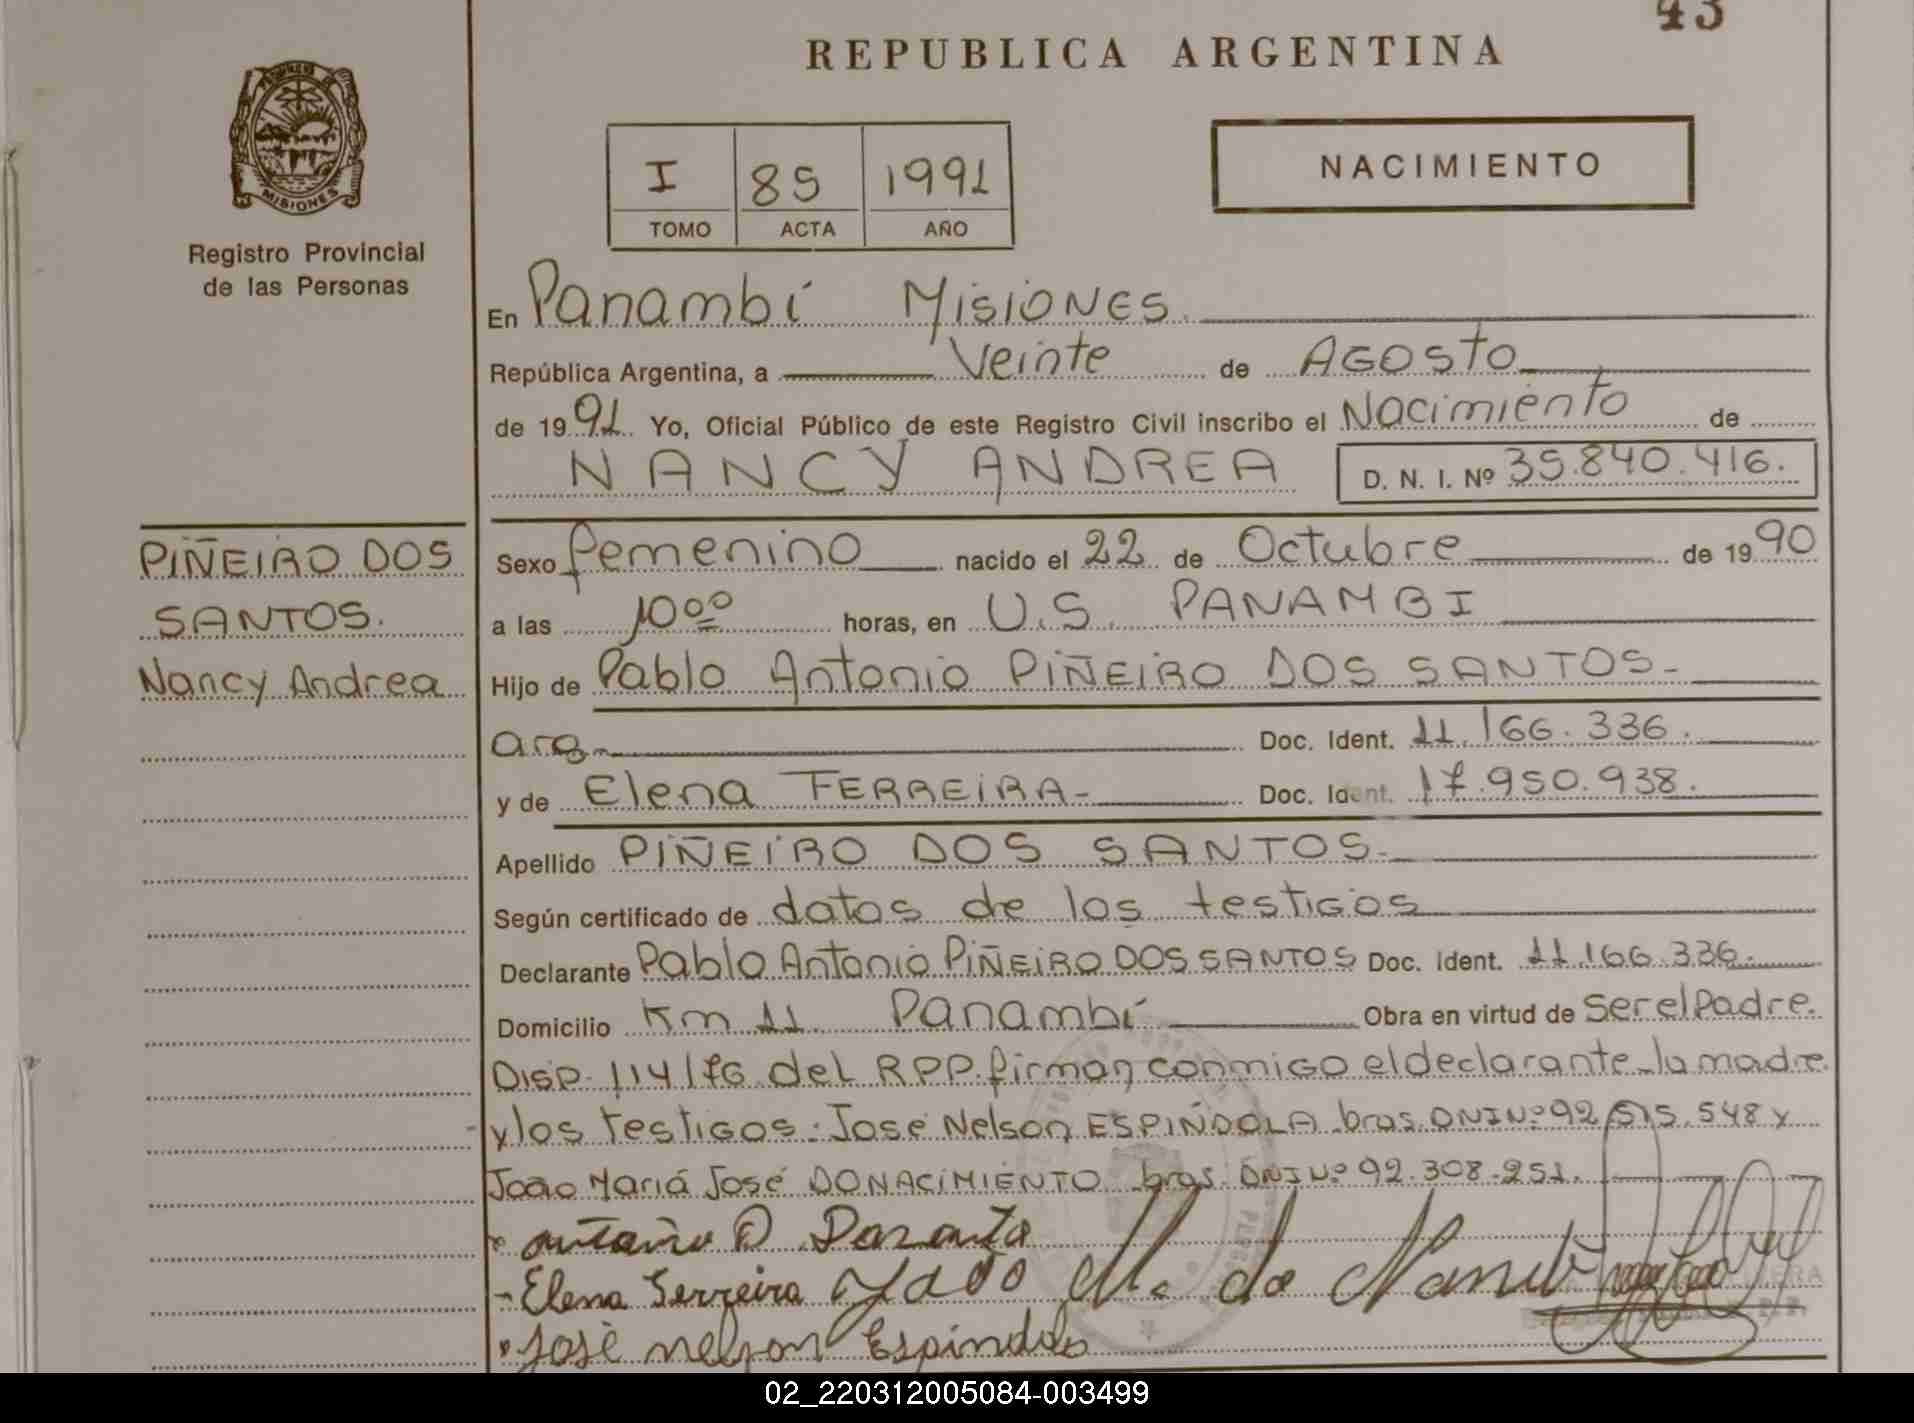 43
REPUBLICA ARGENTINA
MISIONES
Registro Provincial
de las Personas
I 85 1991
TOMO ACTA AÑO
NACIMIENTO
En Panambí Misiones
República Argentina, a Veinte de Agosto
de 1991 Yo, Oficial Público de este Registro Civil inscribo el Nacimiento de
NANCY ANDREA D. N. I. Nº 35.840.416.
PIÑEIRO DOS
SANTOS.
Nancy Andrea
Sexo femenino nacido el 22 de Octubre de 1990
a las 10⁰⁰ horas, en U.S. PANAMBI
Hijo de Pablo Antonio PIÑEIRO DOS SANTOS-
arg. Doc. Ident. 11.166.336.
y de Elena FERREIRA- Doc. Ident. 17.950.938.
Apellido PIÑEIRO DOS SANTOS.
Según certificado de datos de los testigos
Declarante Pablo Antonio PIÑEIRO DOS SANTOS Doc. Ident. 11.166.336.
Domicilio Km 11 Panambí Obra en virtud de Ser el Padre.
Disp. 114/76 del RPP. firman conmigo el declarante la madre
y los testigos: José Nelson ESPIÑDOLA bras. DNI Nº 92.515.548 y
Joao Mariá José DONACIMIENTO bras. DNI Nº 92.308.251.
-Elena Ferreira M. do
José nelson Espindola
02_220312005084-003499